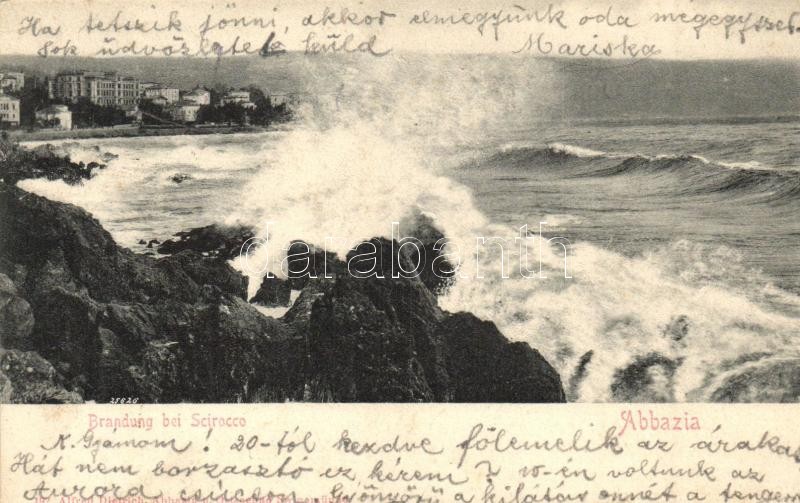 Ha tetszik jönni, akkor elmegyünk oda mégegyszer
Sok üdvözletek küld Mariska
darabanth.com
25820
Brandung bei Scirocco
Abbazia
K. Gyámom! 20-tól kezdve fölemelik az árakat
Hát nem borzasztó ez kérem? 10-én voltunk az
Aurora csúcson. Gyönyörű a kilátás onnét a tenger
Alfred Dietrich, Abbazia